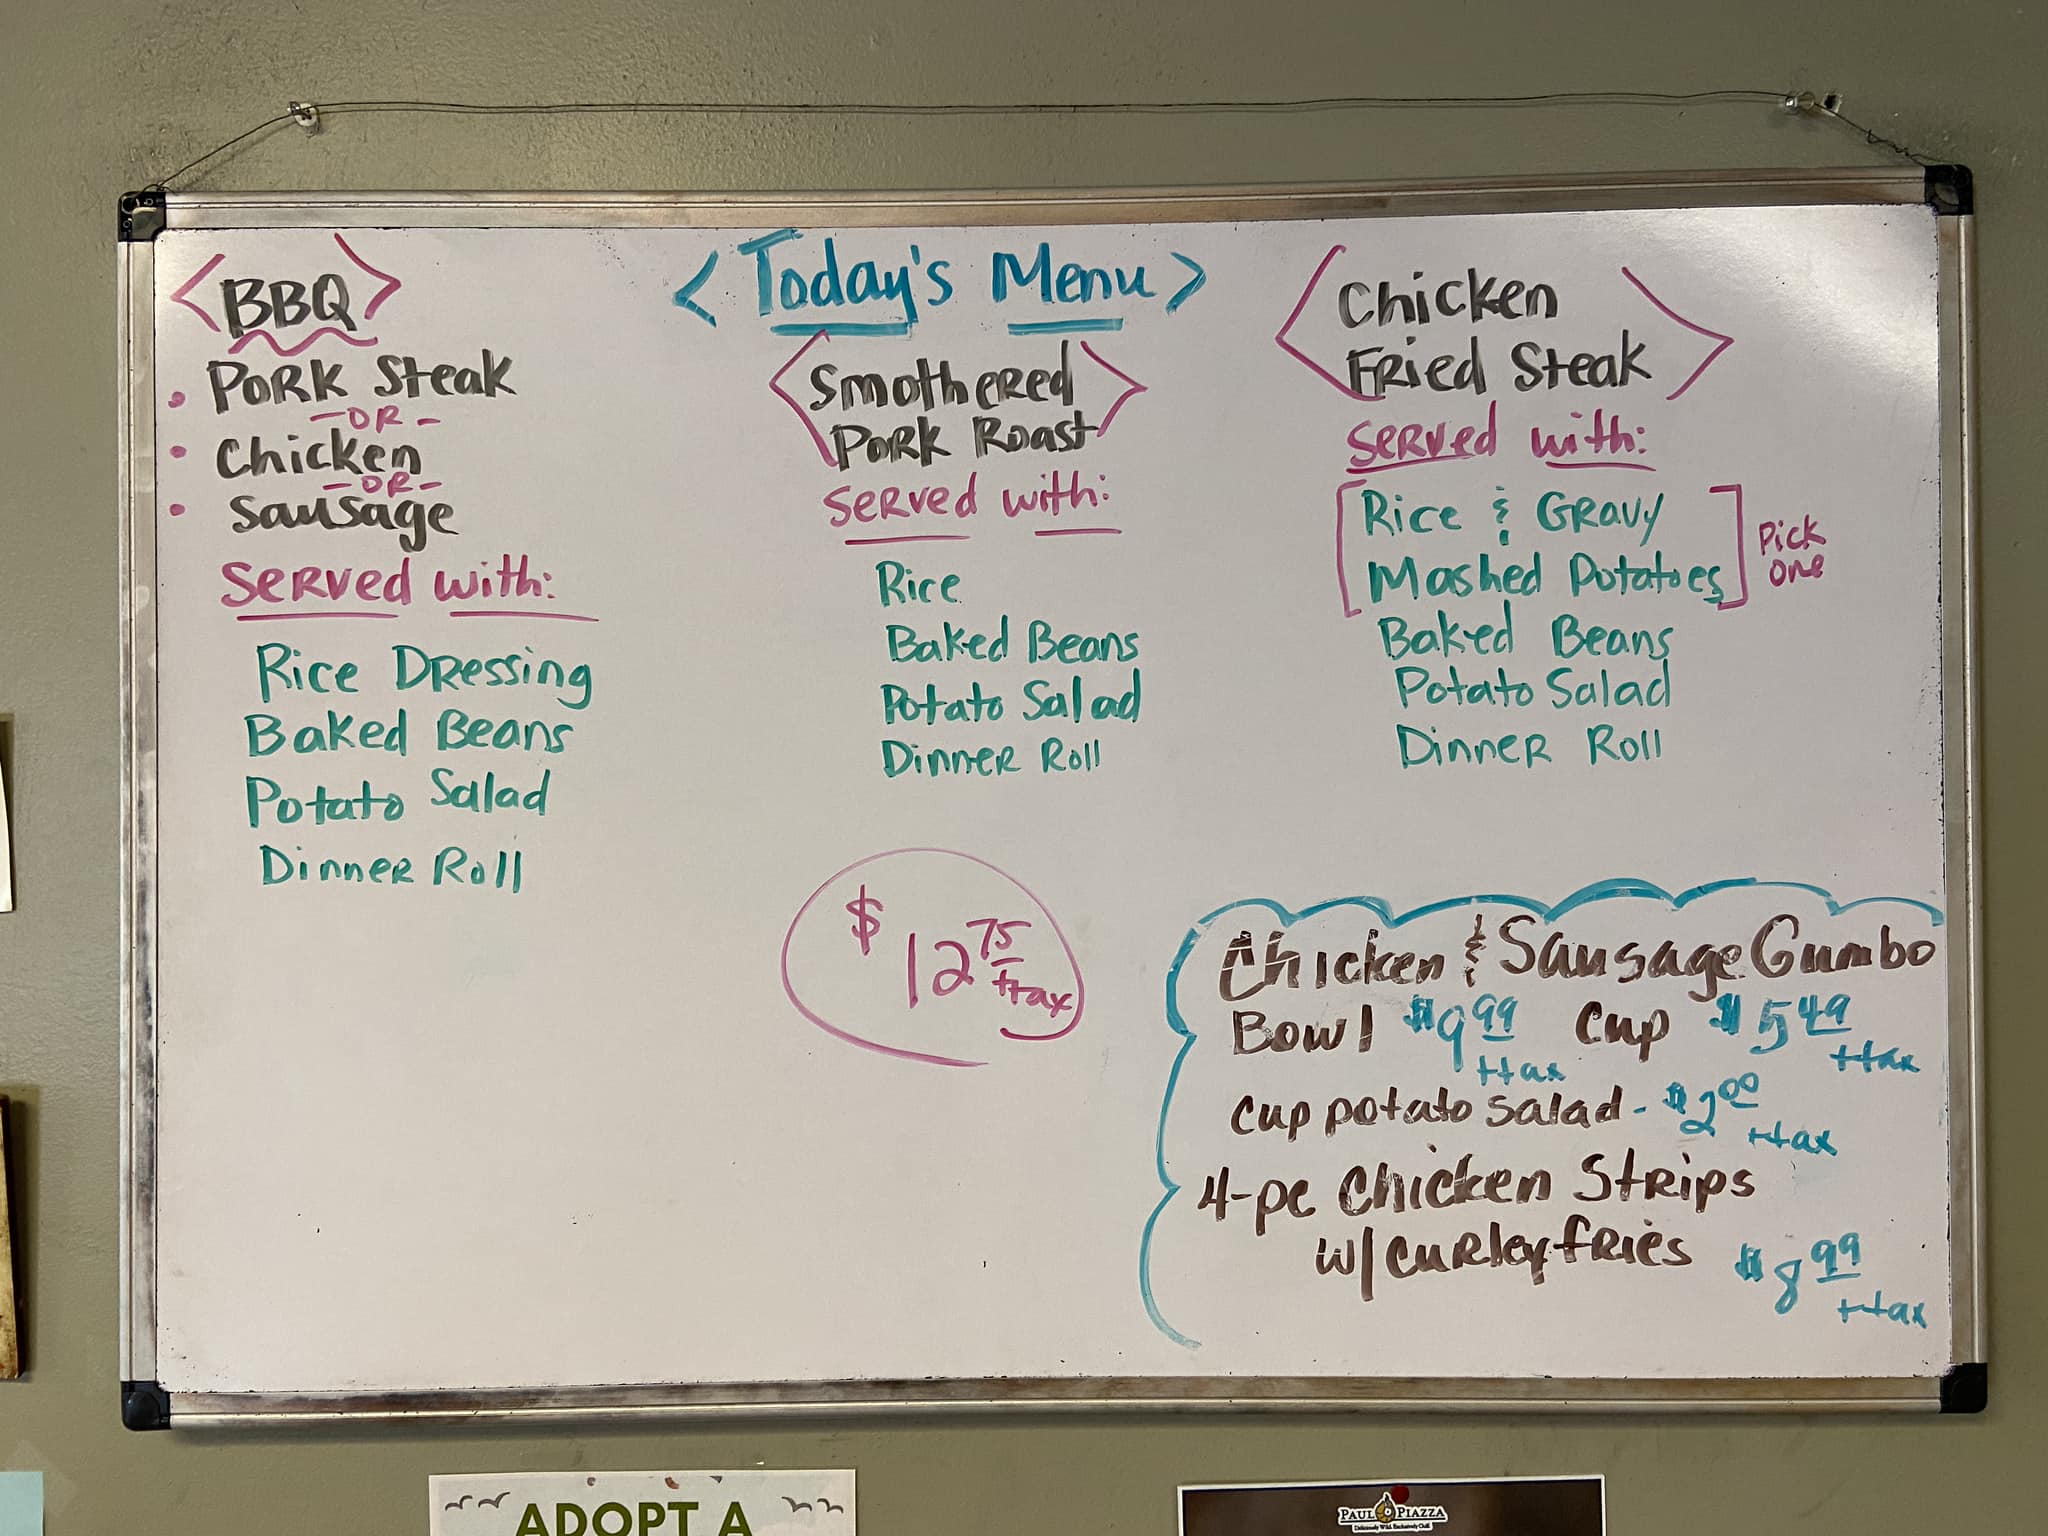 < Today's Menu >
<BBQ>
• Pork Steak
- OR -
• Chicken
- OR -
• Sausage
Served with:
Rice Dressing
Baked Beans
Potato Salad
Dinner Roll
Smothered
Pork Roast
Served with:
Rice
Baked Beans
Potato Salad
Dinner Roll
Chicken
Fried Steak
Served with:
Rice & Gravy
Mashed Potatoes
Pick
one
Baked Beans
Potato Salad
Dinner Roll
$12 75 +tax
Chicken & Sausage Gumbo
Bowl $9 99 +tax Cup $5 49 +tax
Cup potato salad - $2 00 +tax
4-pc Chicken Strips
w/ curley fries $8 99 +tax
ADOPT A
PAUL PIAZZA